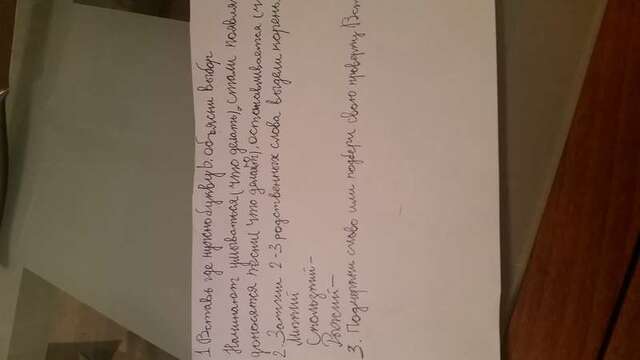 1 Вставь где нужно букву ь. объясни выбор
Начинают умываться (что делать), стали появля
доносятся песни (что делают), останавливается (ч
2. Запиши 2-3 родственных слова выдели корень.
Липкий
Скользкий-
Рыжий-
3. Подчеркни слово или подбери свою проверку Вст